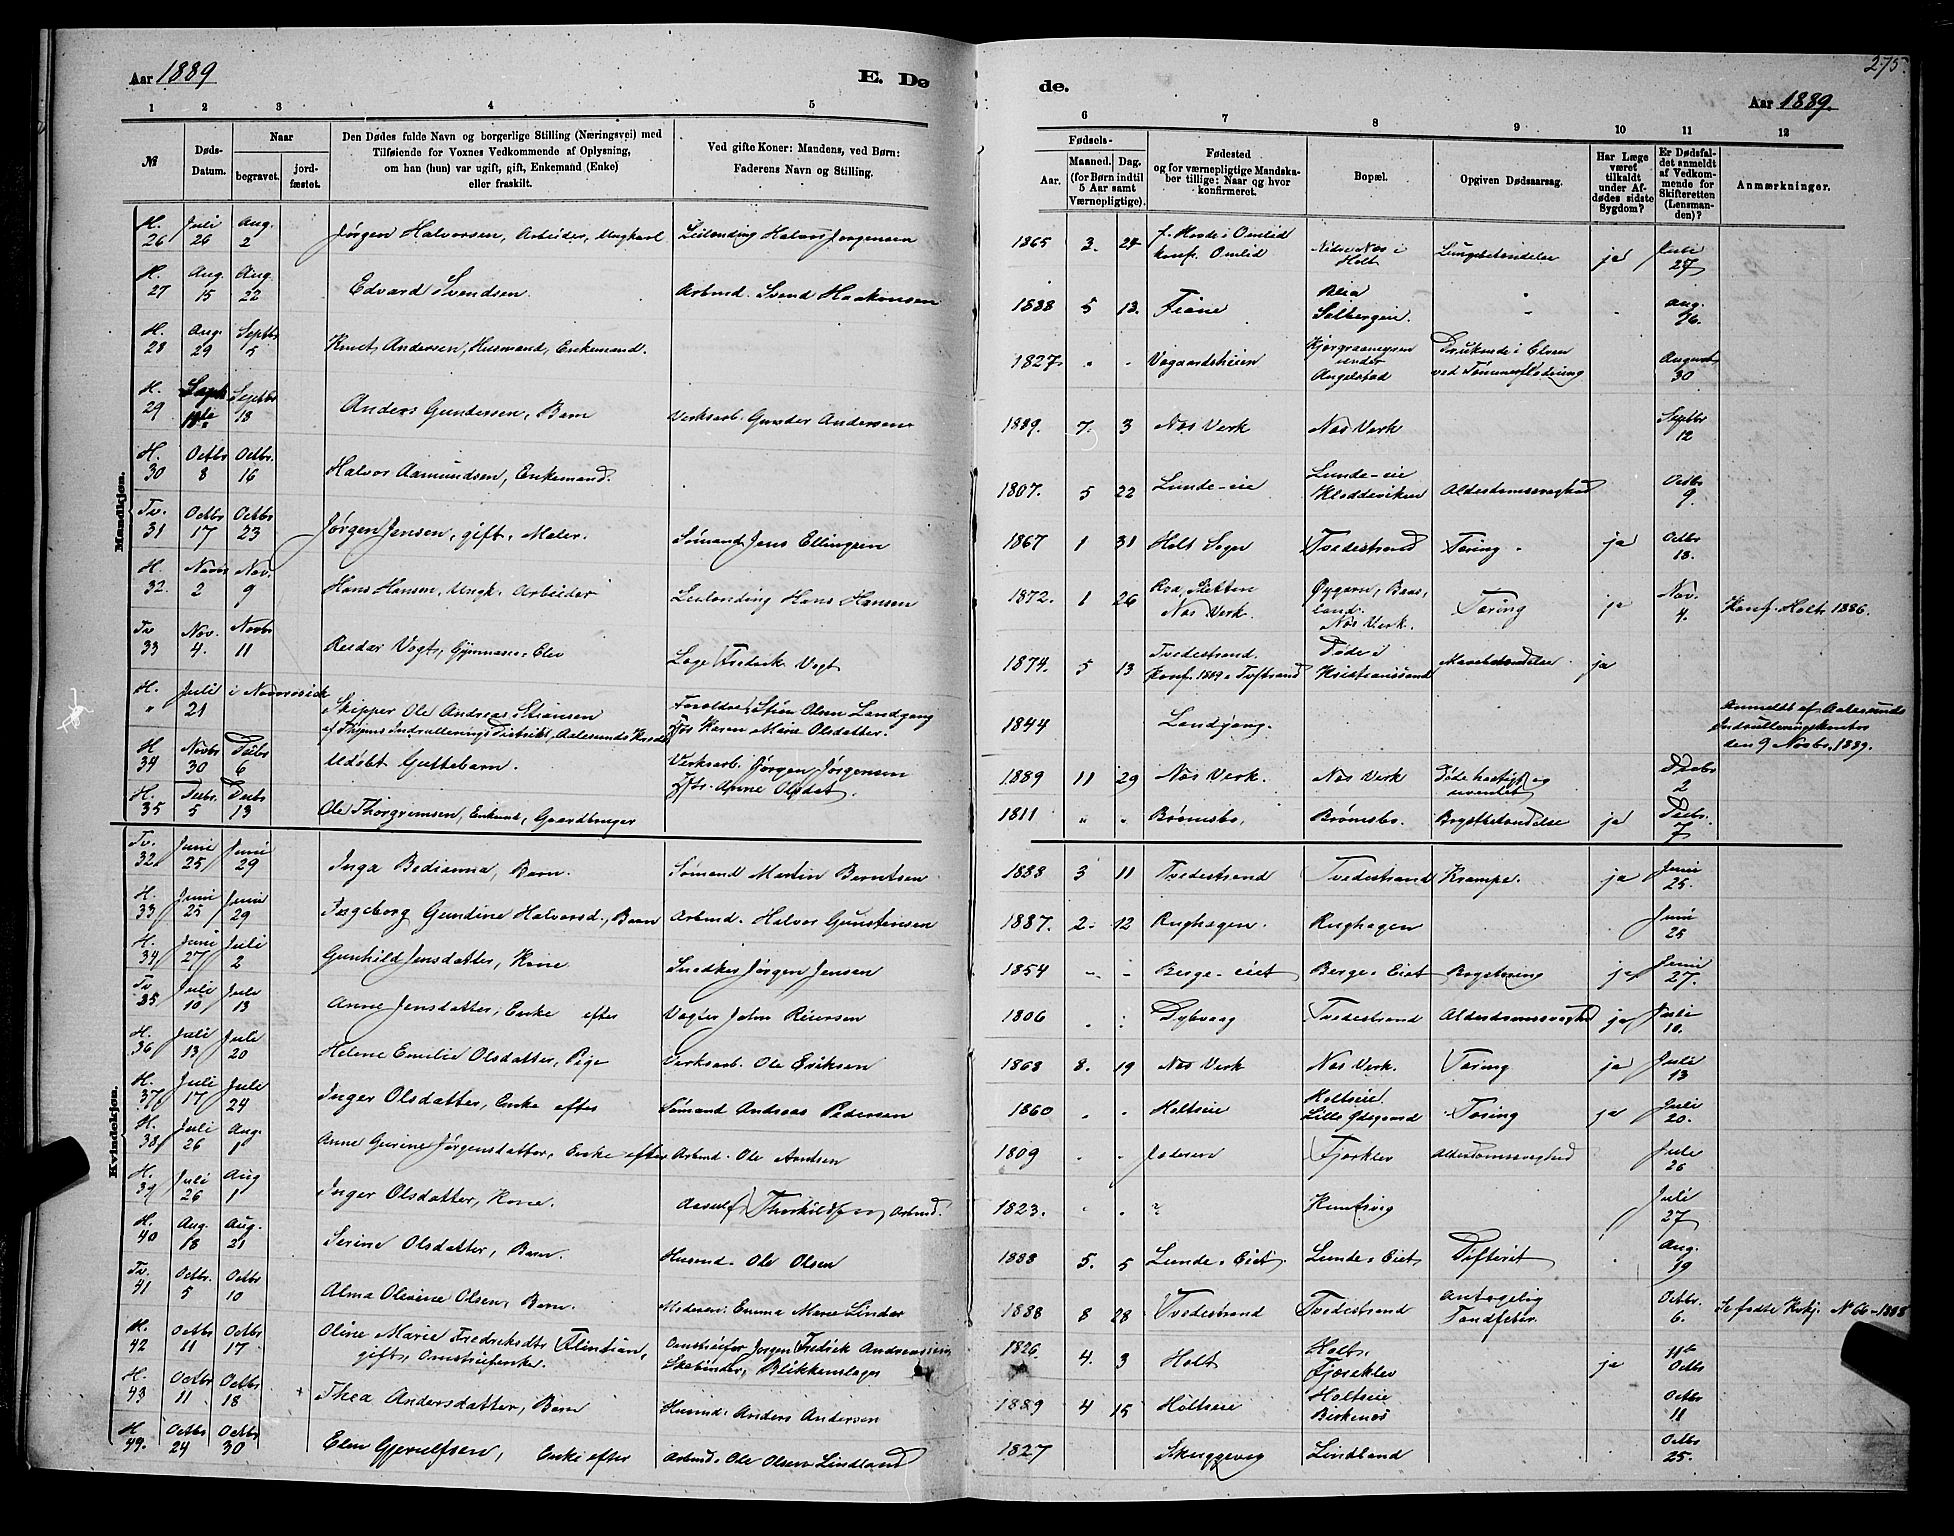 275.
Aar 1889
E. Dø
de.
Aar 1889.
1 2 3 4 5
6 7 8 9 10 11 12
№
Døds-Datum.
Naar
begravet.
jordfæstet.
Den Dødes fulde Navn og borgerlige Stilling (Næringsvei) med
Tilføiende for Voxnes Vedkommende af Oplysning,
om han (hun) var ugift, gift, Enkemand (Enke)
eller fraskilt.
Ved gifte Koner: Mandens, ved Børn:
Faderens Navn og Stilling.
Fødsels-
Aar.
Maaned. Dag.
(for Børn indtil
5 Aar samt
Værnepligtige).
Fødested
og for værnepligtige Mandskaber tillige: Naar og hvor
konfirmeret.
Bopæl.
Opgiven Dødsaarsag.
Har Læge
været
tilkaldt
under Afdødes sidste
Sygdom?
Er Dødsfaldet anmeldt
af Vedkommende for
Skifteretten
(Lensmanden)?
Anmærkninger.
Mandkjøn.
H. 26 Juli 26 Aug. 2 Jørgen Halvorsen, Arbeider, Ungkarl Leilending Halvor Jørgensen 1865 3. f. i Omlid konf. Omlid Nedre Næs i Holt Lungebetændelse ja Juli 27
H. 27 Aug. 15 Aug. 22 Edvard Svendsen. Arbmd. Svend Haakonsen 1888 5 13. Fiane Solbergeie. " " Aug. 16.
H. 28 Aug. 29 Septbr 5 Knut Andersen, Husmand, Enkemand. 1827. " " Vegaardsheien under Angelstad Druknede i Elven ved Tømmerflødning August 30
H. 29 Sept. 11te Septbr 18 Anders Gundersen, Barn Verksarb. Gunder Andersen 1889. 7. 3 Næs Verk Næs Verk Septbr 12
H. 30 Octbr 8 Octbr. 16 Halvor Aamundsen, Enkemand. 1807. 5 22 Lunde-eie Lunde-eie Kloddeviken Alderdomssvaghed Octbr 9.
Tv. 31 Octbr 17 Octbr 23 Jørgen Jensen, gift, Maler. Sømand Jens Ellingsen 1867 1 31 Holt Sogn Tvedestrand Tæring. ja Octbr 18.
H. 32. Novbr 2 Nov. 9 Hans Hansen, Ungk. Arbeider Leilending Hans Hansen 1872. 1 26 Sletten Næs Verk. Øygarn, Baasland. Næs Verk. Tæring ja Nov. 4. Konf. Holt 1886.
Tv 33 Nov. 4. Novbr 11 Reidar Vogt, Gymnasie-Elev Læge Fredrik Vogt 1874. 5 13 Tvedestrand. Konf. 1889 i Tvedstrand Døde i Kristianssand Mavebetændelse. ja
H. " Juli 21 i Novorosisk Skipper Ole Andreas Stiansen af Indrullerings Distrikt, Aalesunds Kreds Forældre: Stian Olsen Landgang Hstr Karen Marie Olsdatter. 1844 Landgang. Anmeldt af Aalesunds Indrulleringskontor den 9 Novbr. 1889.
H 34 Novbr 30 Decbr 6 Udøbt Guttebarn. Verksarb. Jørgen Jørgensen Hstr. Anne Olsdat. 1889 11 29 Næs Verk. Næs Verk Døde hastigt og uventet Decbr 2
H. 35 Decbr. 5 Decbr 13 Ole Thorgrimsen, Enkem., Gaardbruger 1811 " " Brømsbo, Brømsbo. Brystbetændelse ja Decbr. 7
Kvindekjøn.
Tv. 32 Juni 25 Juni 29 Inga Bedianna, Barn. Sømand Martin Berntsen 1888 3 11 Tvedestrand Tvedestrand Krampe. ja Juni 25.
H. 33 Juni 25 Juni 29 Ingeborg Gundine Halvorsd., Barn Arbmd. Halvor Gunstensen 1887. 2. 12 Rughagen. Rughagen Juni 25
H. 34 Juni 27 Juli 2 Gunhild Jensdatter, Kone Snedker Jørgen Jensen 1854 " " Berge-eiet Berge-Eiet Brysttæring ja Juni 27.
Tv 35 Juli 10 Juli 13 Anne Jensdatter, Enke efter Vægter John Reiersen 1806 " " Dybvaag Tvedestrand Alderdomssvaghed ja Juli 10.
H. 36 Juli 13 Juli 20 Helene Emilie Olsdatter, Pige Verksarb. Ole Eriksen 1868 8. 19 Næs Verk Næs Verk. Tæring ja Juli 13
H. 37 Juli 17 Juli 24 Inger Olsdatter, Enke efter Sømand Andreas Pedersen 1860 " " Holtseie Holtseie Lille Ødegaard Tæring ja Juli 20.
H. 38 Juli 26 Aug. 1 Anne Gurine Jørgensdatter, Enke efter Arbmd. Ole 1809 " " Jæderen Fjærklev Alderdomssvaghed Juli 26
H. 39 Juli 26 Aug 1 Inger Olsdatter, Kone. Aasulf Thorkildsen, Arbmd. 1823. " " ? Juli 27
H. 40 Aug. 18 Aug. 21 Serine Olsdatter, Barn. Husmd. Ole Olsen 1888 5. 5 Lunde-Eiet. Lunde-Eiet Difterit Aug. 19
Tv. 41 Octbr. 5 Octbr 10 Alma Olevine Olsen, Barn. Moderen: Emma Marie Linder 1888 8 28 Tvedestrand Tvedestrand Antagelig Tandfeber. Octbr. 6. Se fødte Kvkj. № 66-1888
H. 42 Octbr 11 Octbr 17 Oline Marie Fredriksdtr Flindian, gift, Omstreiferske. Omstreifer Jørgen Fredrik Andreassen Skobinder, Blikkenslager 1826. 4. 3 Holt Holt. Fjærklev ja 11te Octbr
H. 43 Octbr 11 Octbr 18 Thea Andersdatter, Barn Husmd. Anders Andersen 1889 4 15 Holtseie Holtseie Birkenæs Octbr 11
H 44. Octbr 24 Octbr 30 Elen Gjerulfsen, Enke efter Arbmd. Ole Olsen Lindland 1827 Skuggevig Lindland Octbr 25.